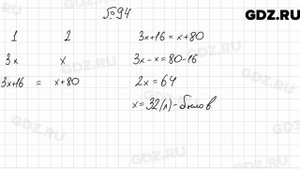 GDZ.RU
№94
1 2 3x+16 = x+80
3x x 3x-x = 80-16
3x+16 = x+80 2x = 64
x = 32 (л) - было
GDZ.RU